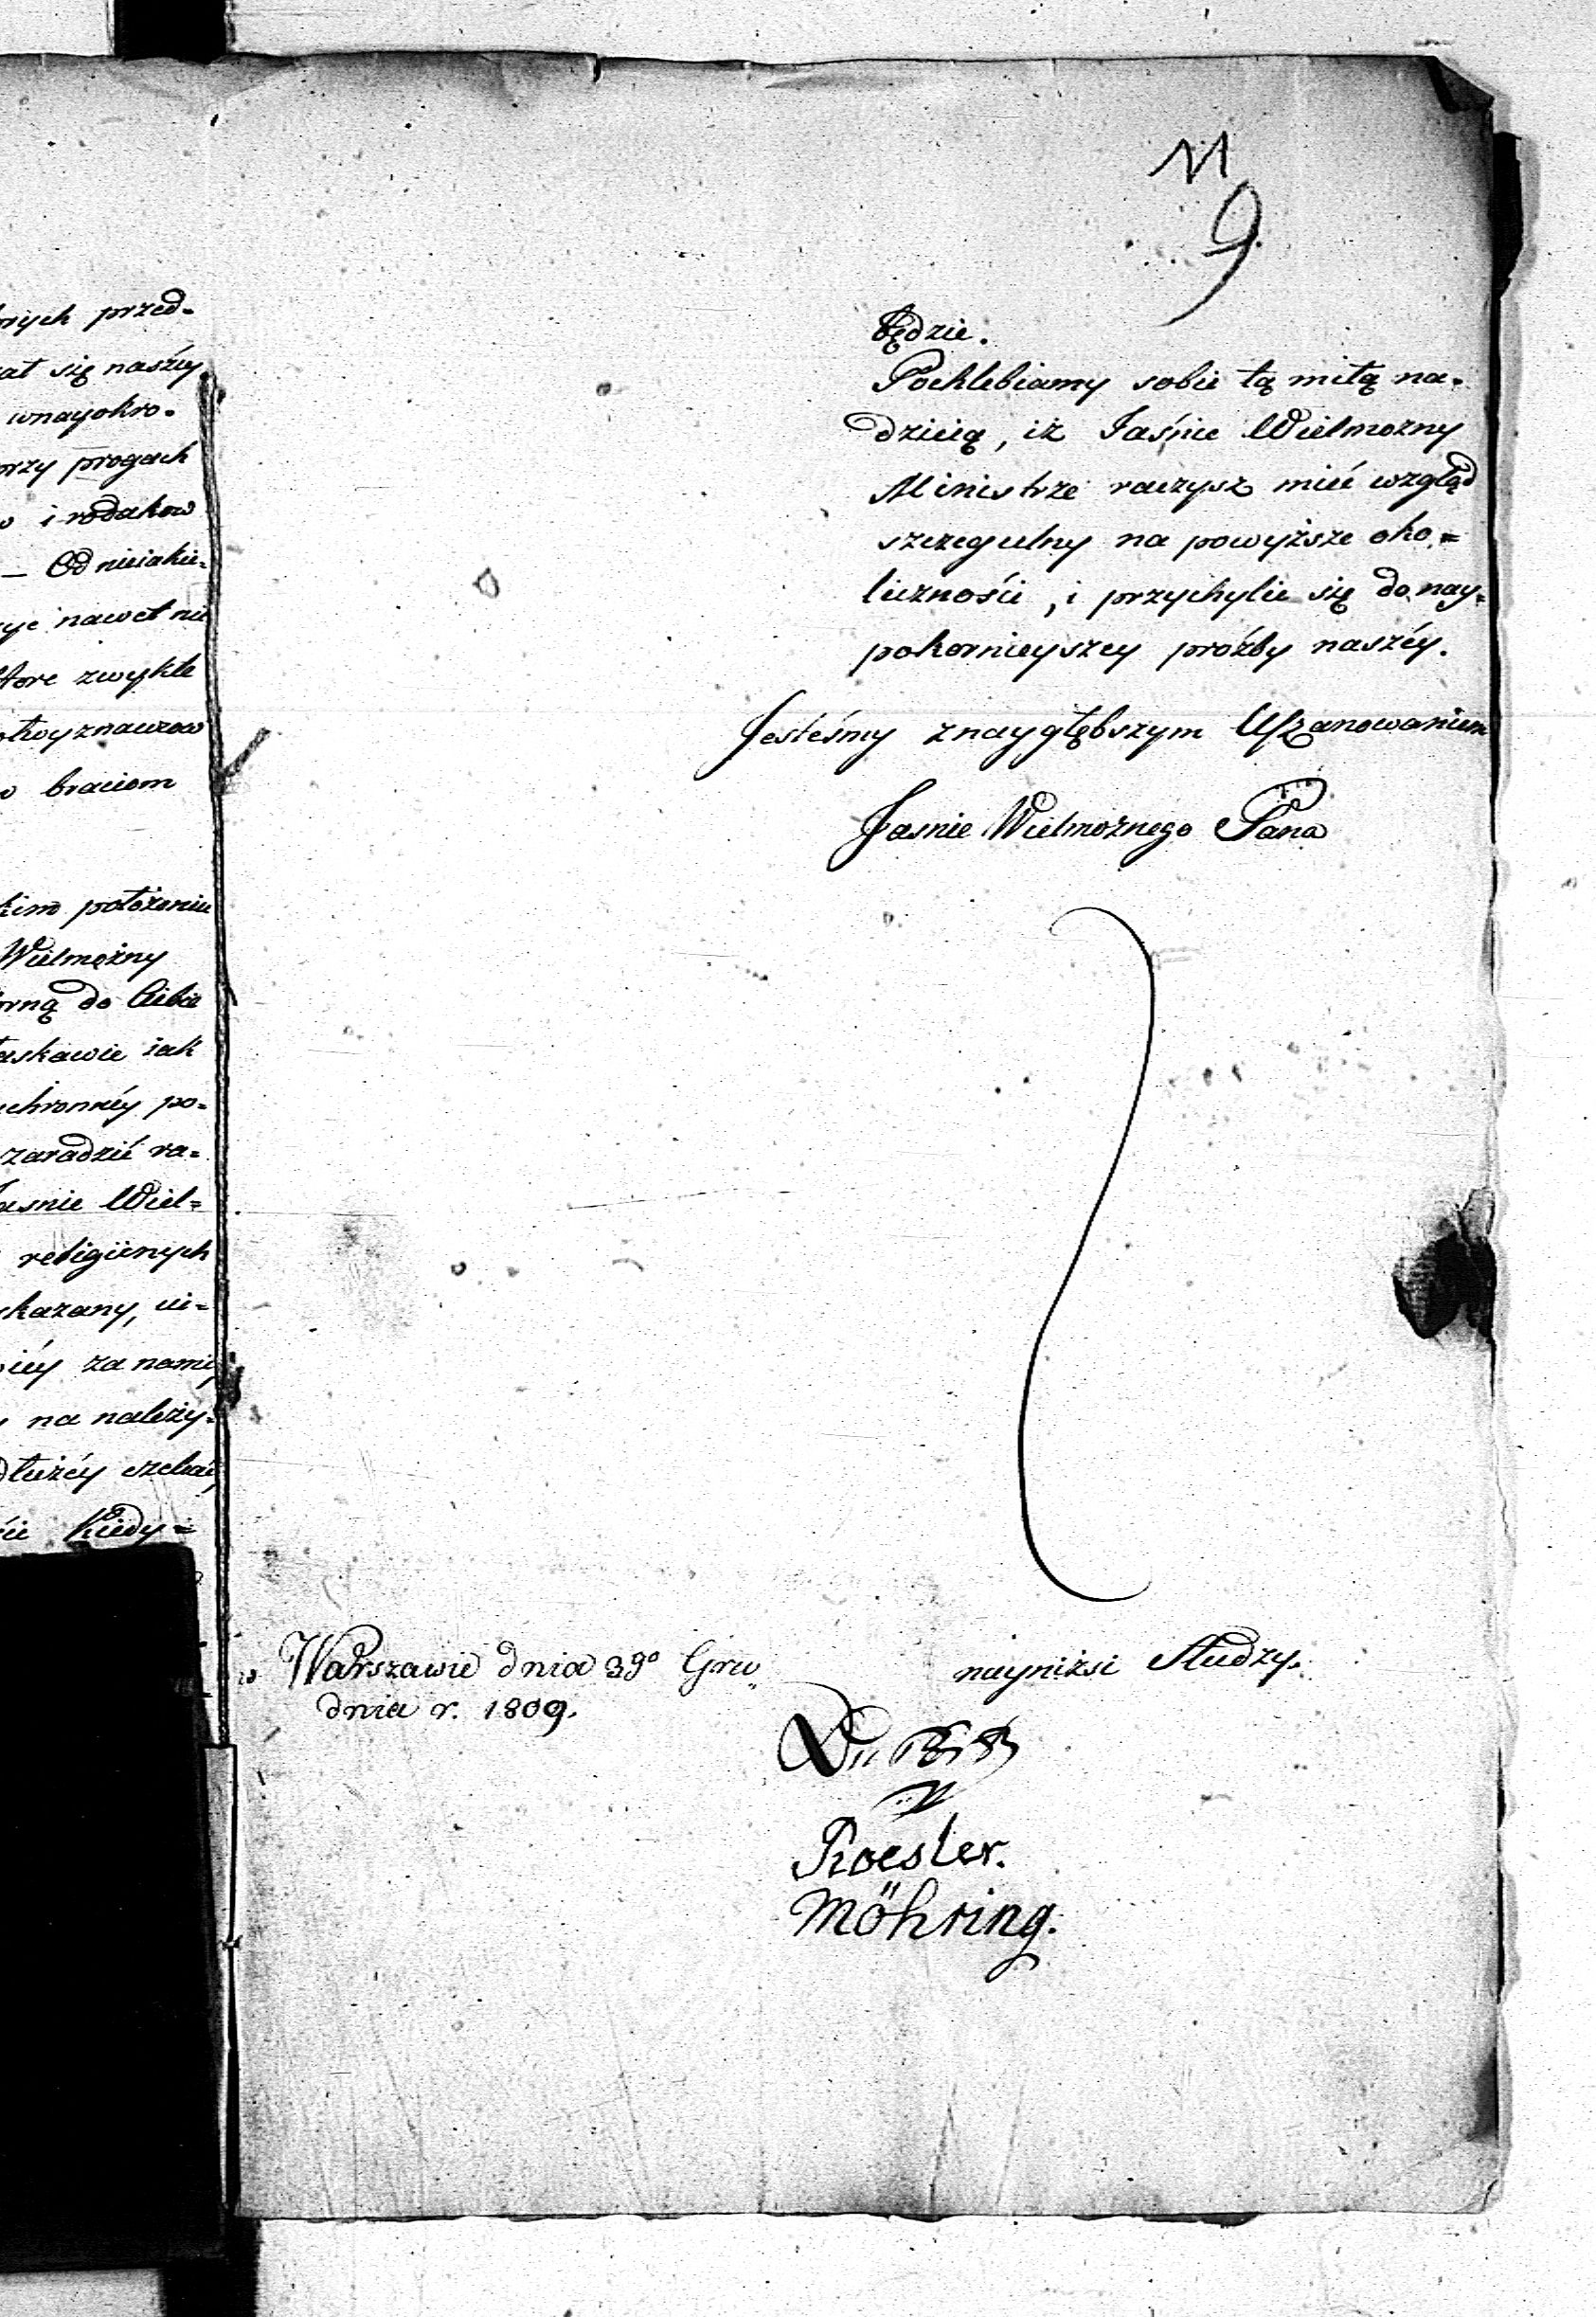 nych przed-
at się naszéy
wnayokro-
przy progach
i rodakow
— Od nieiakie-
nawet nie
ktore zwykle
braciom
położeniu
Wielmożny
do Ciebie
łaskawie iak
po-
zaradzić ra-
Jasnie Wiel-
religiinych
skazany, ui-
za nami,
na należy-
dłużéy czekać,
Kiedy-
11
9
będzie.
Pochlebiamy sobie tą miłą na-
dzieią, iż Jaśnie Wielmozny
Ministrze raczysz mieć wzgląd
szczegulny na powyższe oko-
liczności, i przychylic się do nay-
pokornieyszey prożby naszéy.
Jesteśmy znaygłębszym Uszanowaniem
Jasnie Wielmoznego Pana
w Warszawie dnia 39° Gru-
dnia r. 1809.
nayniżsi Słudzy.
Roesler.
Möhring.